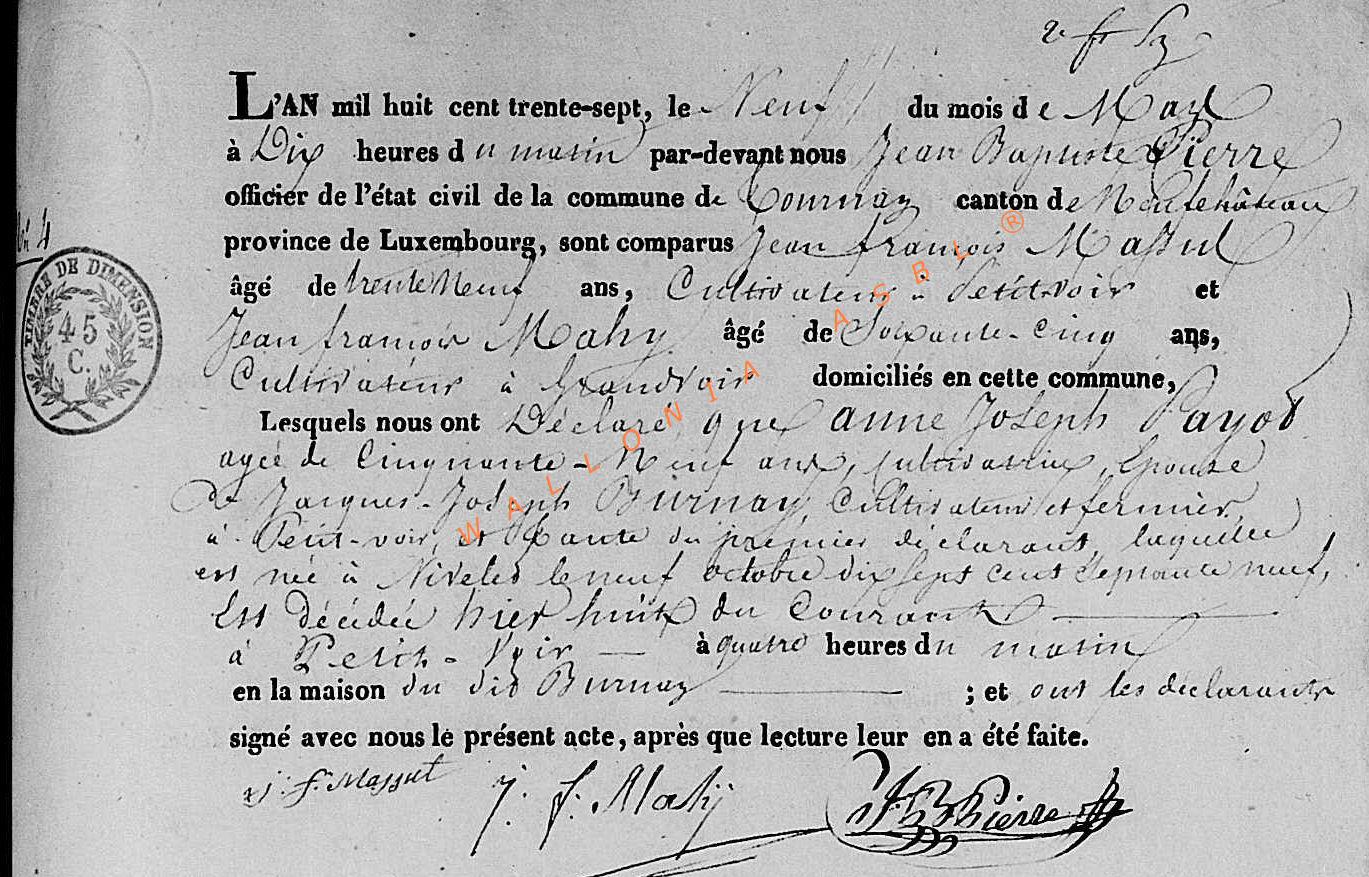 2 fr
L'AN mil huit cent trente-sept, le Neuf du mois de May
à Dix heures du matin par-devant nous Jean Baptiste Pierre
officier de l'état civil de la commune de Tournay canton de Neufchâteau
province de Luxembourg, sont comparus Jean françois Massul
âgé de trente Neuf ans, Cultivateur à Petitvoir et
Jean françois Mahy âgé de Soixante-Cinq ans,
Cultivateur à Grandvoir domiciliés en cette commune,
Lesquels nous ont Déclaré, que anne Joseph Payot
agée de Cinquante-Neuf ans, cultivatrice, Epouse
de Jacques-Joseph Burnay, Cultivateur et fermier,
à Petit-voir, et tante du premier déclarant, laquelle
est née à Niveles le neuf octobre dix sept cent Septante neuf,
Est décédée hier huit du Courant
à Petit-Voir à quatre heures du matin
en la maison du dit Burnay ; et ont les déclarants
signé avec nous le présent acte, après que lecture leur en a été faite.
j. f. Massul J. f. Mahy J B Pierre
N 4
TIMBRE DE DIMENSION
45
C.
WALLONIA ASBL ®